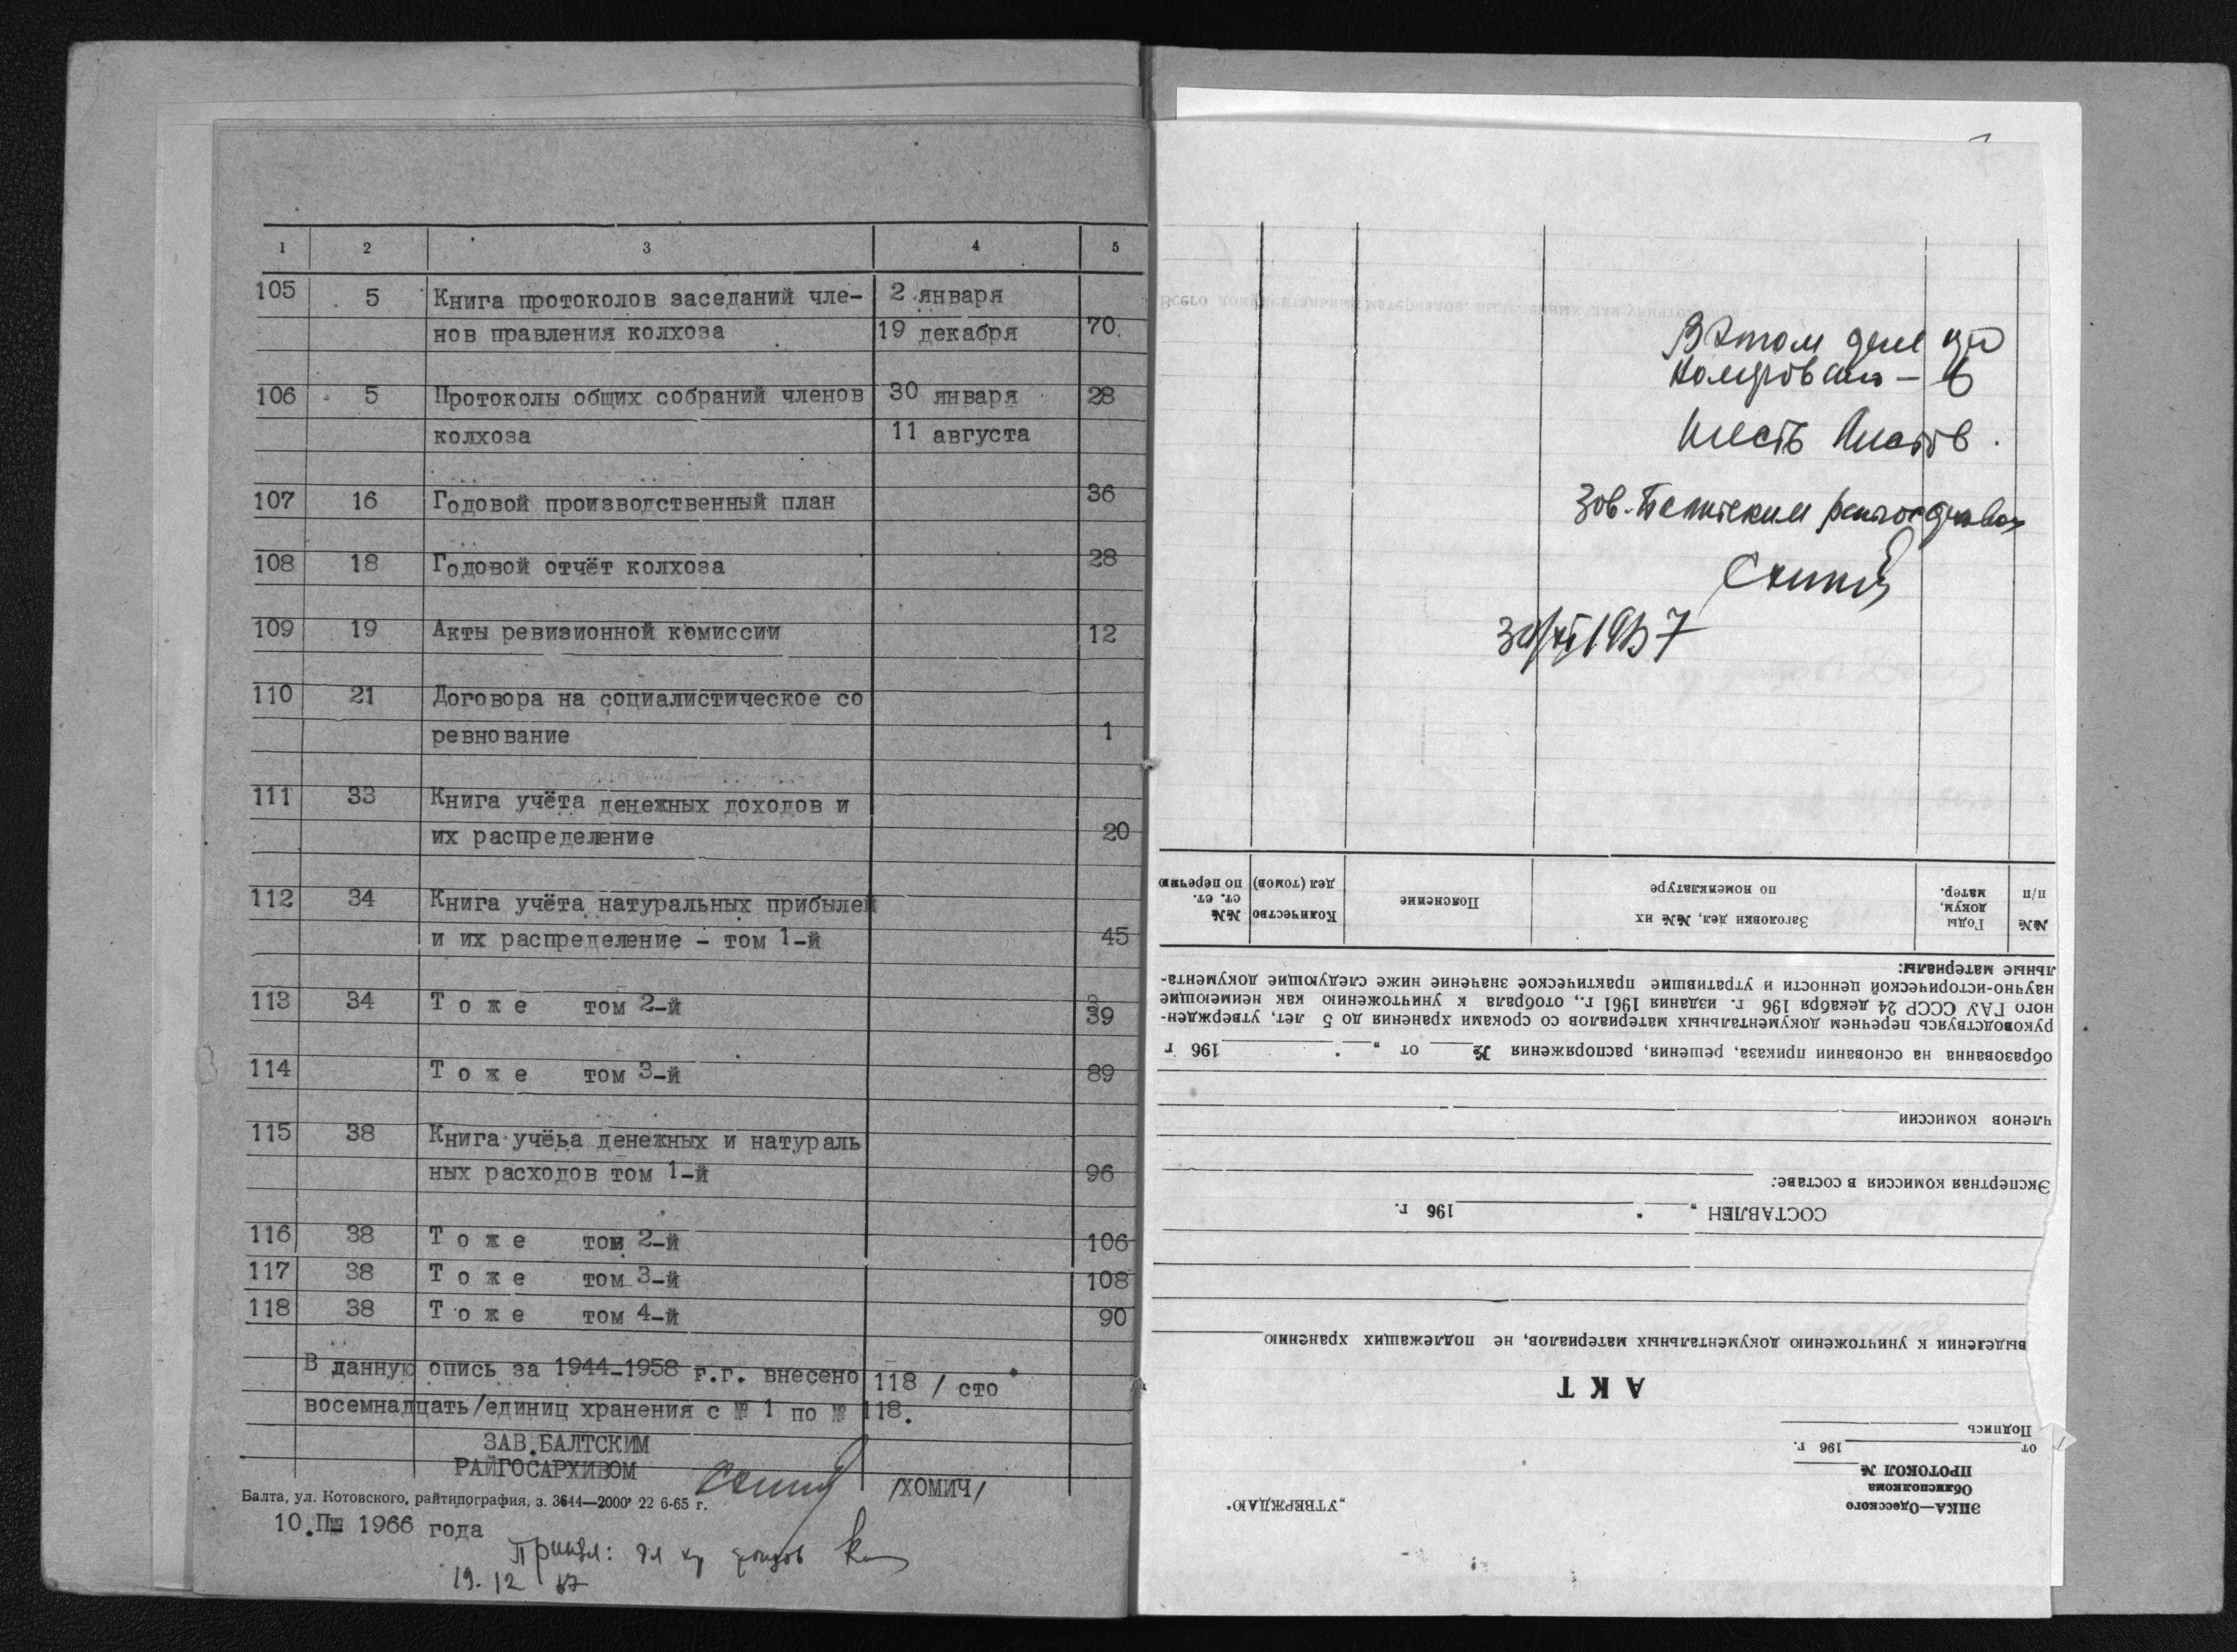 1 2 3 4 5
105 5 Книга протоколов заседаний чле- 2 января
нов правления колхоза 19 декабря 70
106 5 Протоколы общих собраний членов 30 января 28
колхоза 11 августа
107 16 Годовой производственный план 36
108 18 Годовой отчёт колхоза 28
109 19 Акты ревизионной комиссии 12
110 21 Договора на социалистическое со
ревнование 1
111 33 Книга учёта денежных доходов и
их распределение 20
112 34 Книга учёта натуральных прибылей
и их распределение - том 1-й 45
113 34 Т о ж е том 2-й 39
114 Т о ж е том 3-й 89
115 38 Книга учёьа денежных и натураль
ных расходов том 1-й 96
116 38 Т о ж е том 2-й 106
117 38 Т о ж е том 3-й 108
118 38 Т о ж е том 4-й 90
В данную опись за 1944-1958 г.г. внесено 118 / сто
восемнадцать/единиц хранения с № 1 по № 118.
ЗАВ.БАЛТСКИМ
РАЙГОСАРХИВОМ /ХОМИЧ/
Балта, ул. Котовского, райтипография, з. 3644—2000 22 6-65 г.
10. 1966 года
19.12 67
В этом деле
6
шесть листов.
Зав. Балтским
„УТВЕРЖДАЮ"
ЭПКА—Одесского
Облисполкома
ПРОТОКОЛ №
от 196 г.
Подпись
АКТ
выделении к уничтожению документальных материалов, не подлежащих хранению
СОСТАВЛЕН „ " 196 г.
Экспертная комиссия в составе:
членов комиссии
образованна на основании приказа, решения, распоряжения № от „ " 196 г
руководствуясь перечнем документальных материалов со сроками хранения до 5 лет, утвержден-
ного ГАУ СССР 24 декабря 196 г. издания 1961 г., отобрала к уничтожению как неимеющие
научно-исторической ценности и утратившие практическое значение ниже следующие документа-
льные материалы:
№№ п/п
Годы докум. матер.
Заголовки дел, №№ их по номенклатуре
Пояснение
Количество дел (томов)
№№ ст. ст. по перечню